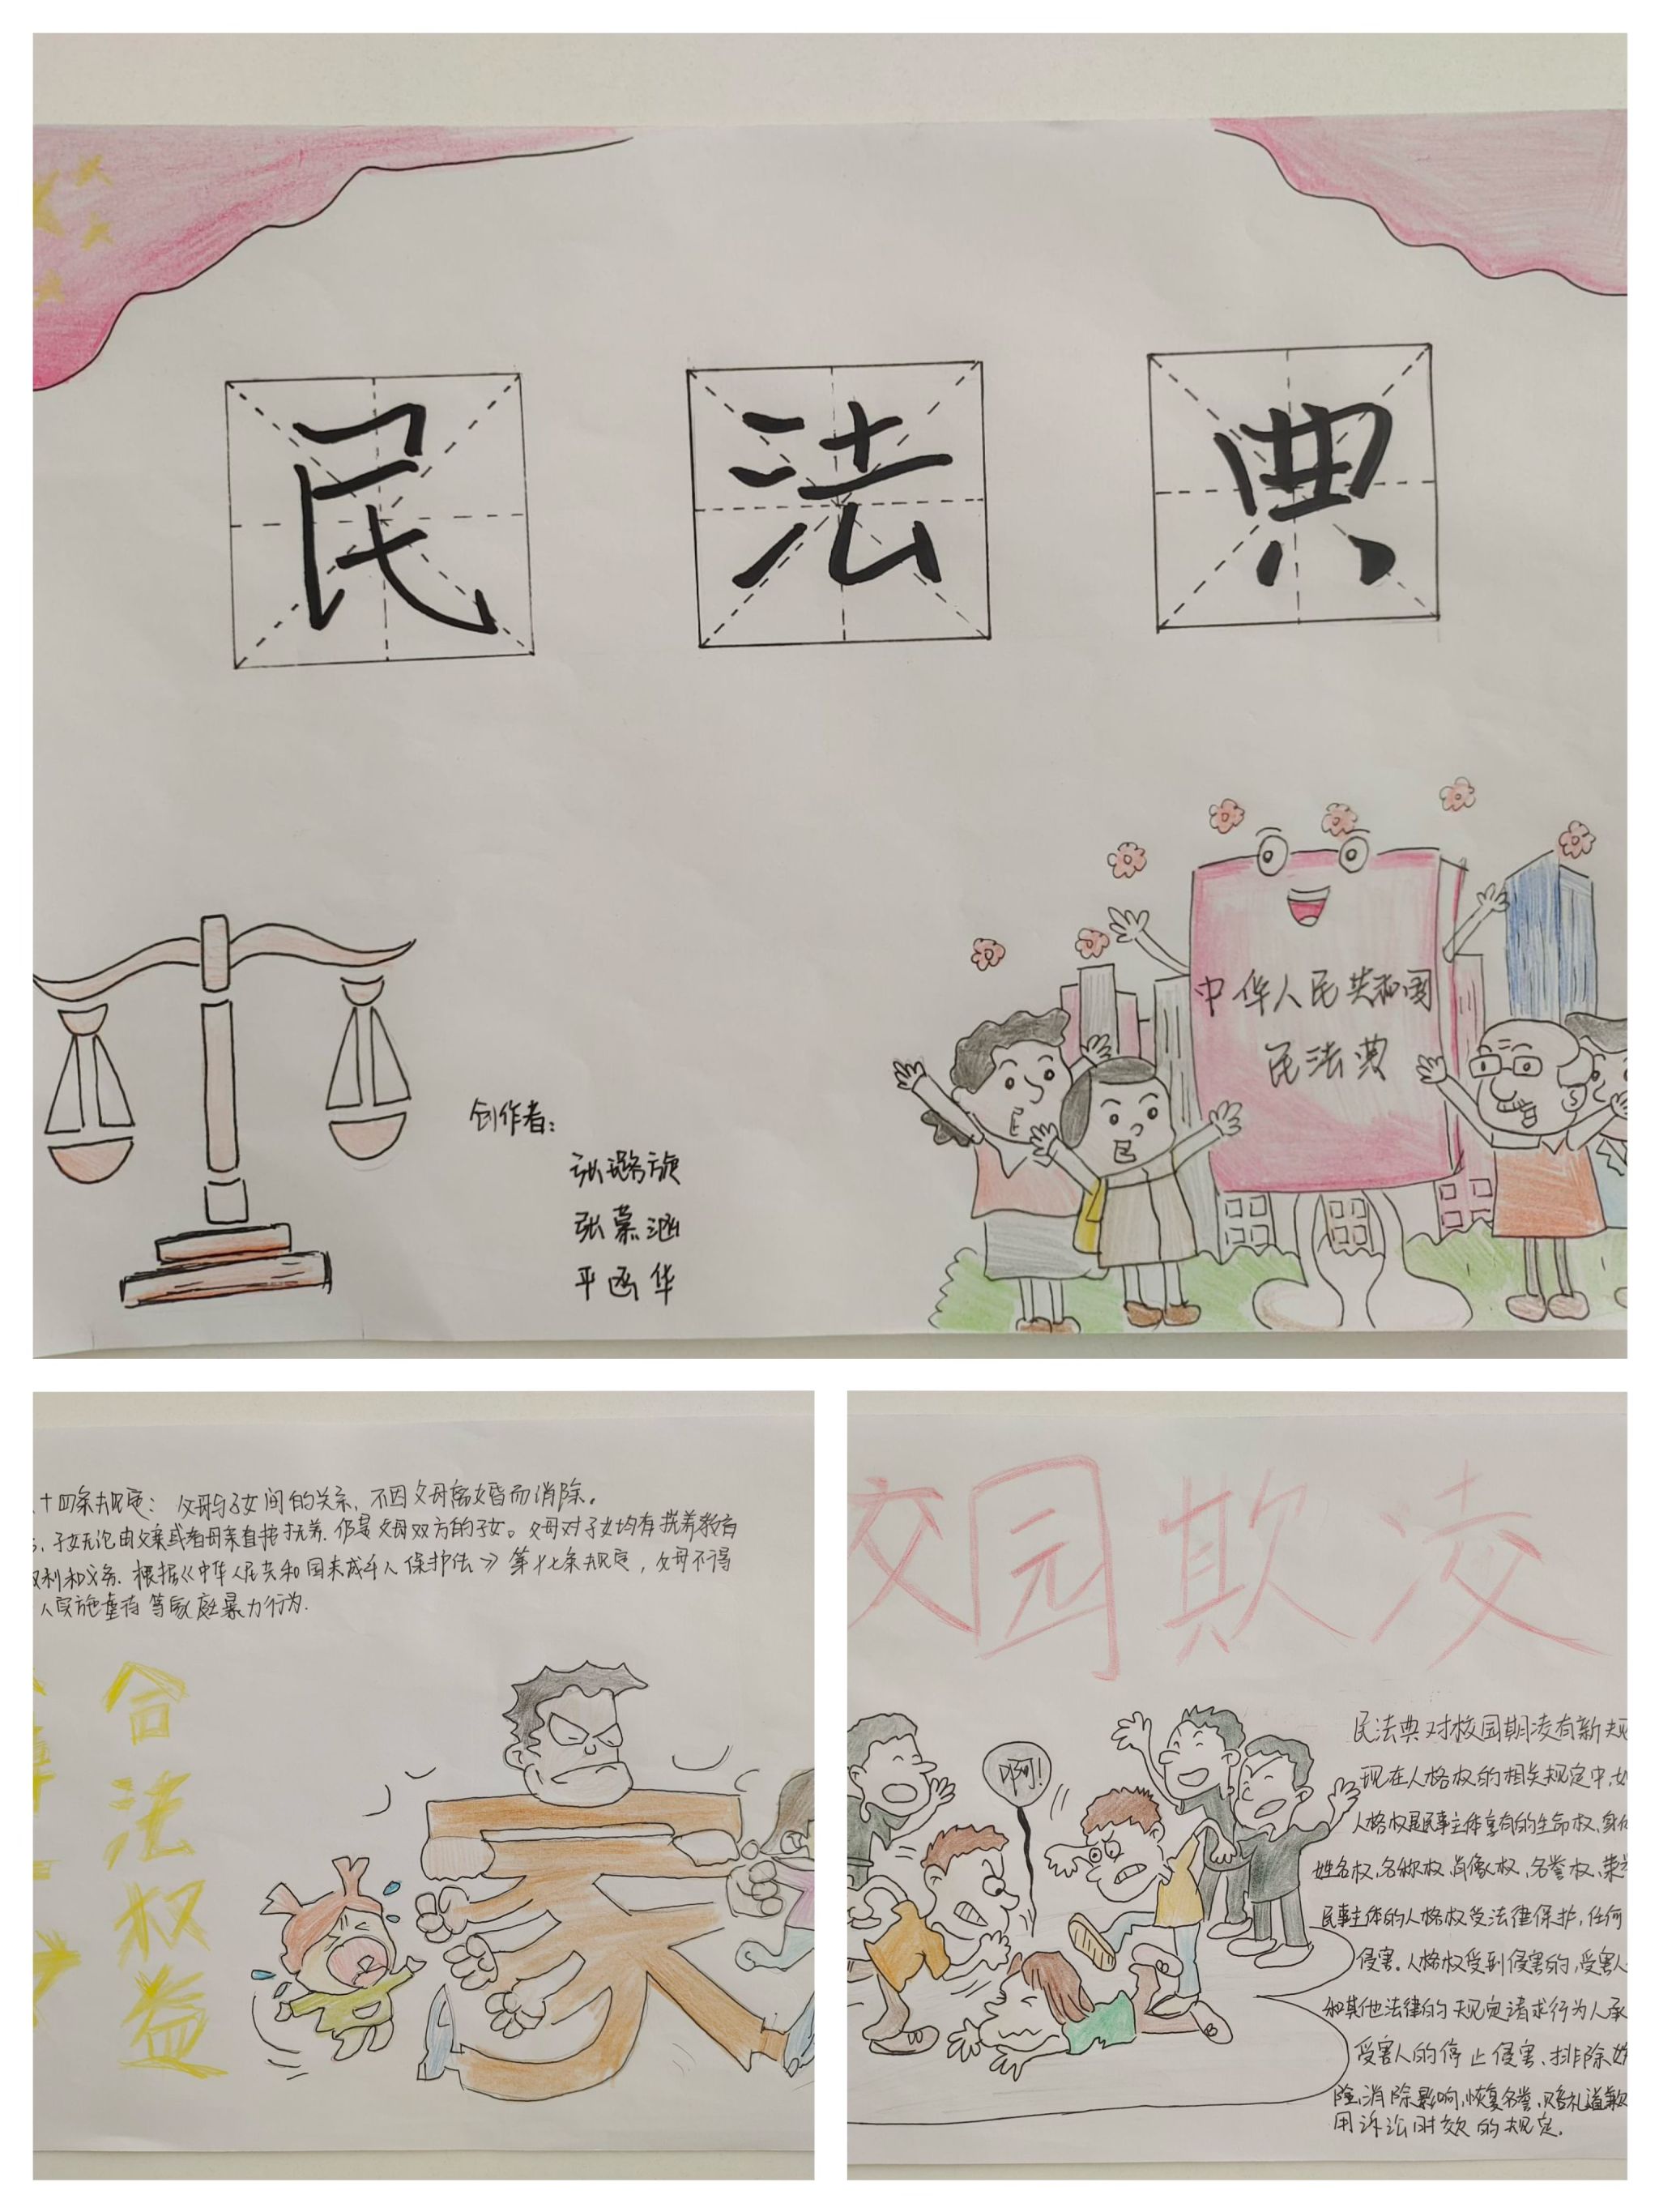 民法典
中华人民共和国
民法典
创作者：
张璐旋
张慕涵
平函华
十四条规定：父母与子女间的关系，不因父母离婚而消除。
子女无论由父亲或者母亲直接抚养，仍是父母双方的子女。父母对子女均有抚养教育
权利和义务。根据《中华人民共和国未成年人保护法》第十七条规定，父母不得
人实施虐待等家庭暴力行为.
合法权益
校园欺凌
啊!
民法典对校园期凌有新规
现在人格权的相关规定中，如
人格权是民事主体享有的生命权、身体
姓名权、名称权、肖像权、名誉权、荣誉
民事主体的人格权受法律保护，任何
侵害.人格权受到侵害的，受害人
和其他法律的规定请求行为人承
受害人的停止侵害、排除妨
险、消除影响、恢复名誉、赔礼道歉
用诉讼时效的规定.